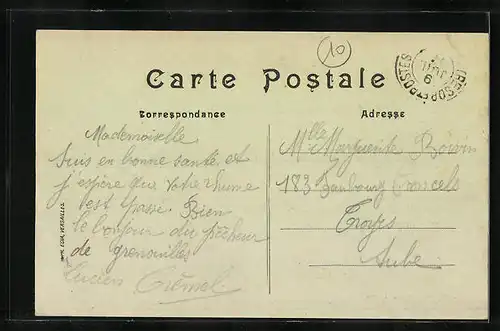 10
TRESOR ET POSTES
Carte Postale
Correspondance
Adresse
Mademoiselle
Suis en bonne santé et
j'espère que votre rhume
est passé Bien
le bonjour du pêcheur
de grenouilles
Lucien
Mlle Marguerite Boivin
183 Faubourg Croncels
Troyes
Aube
IMP. EDIA, VERSAILLES